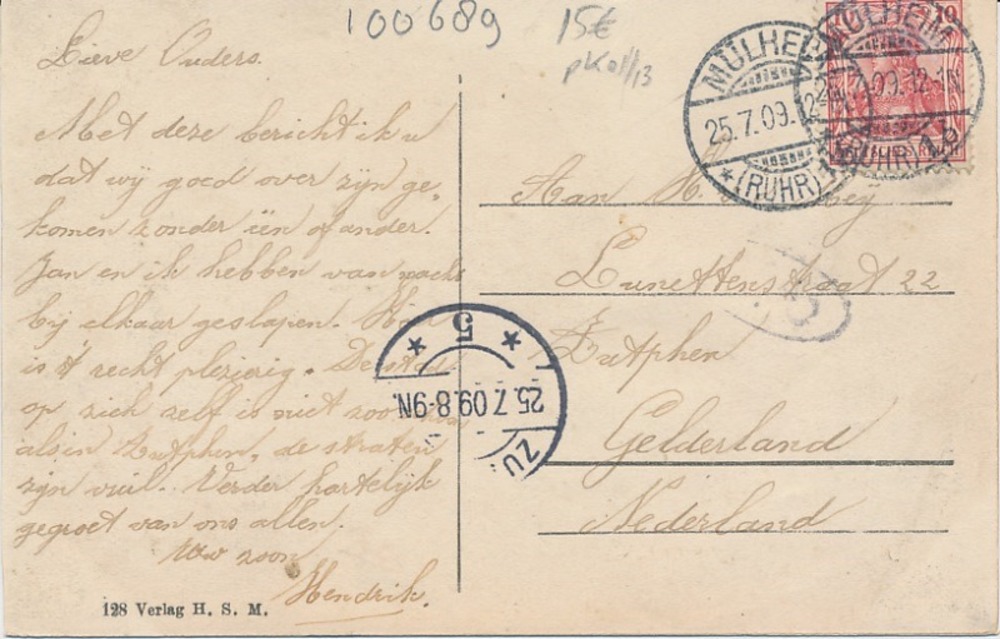 100689
15€
pk01/13
Lieve Ouders.
Met deze bericht ik u
dat wij goed over zijn ge-
komen zonder een of ander.
Jan en ik hebben van nacht
bij elkaar geslapen. Hier
is 't recht plezierig. De stad
op zich zelf is niet zoo
als in Zutphen, de straten
zijn vuil. Verder hartelijk
gegroet van ons allen.
Uw zoon
Hendrik.
128 Verlag H. S. M.
MÜLHEIM
25.7.09.12-1N.
*(RUHR)1
MÜLHEIM
7.09.12-1N.
(RUHR)1
10
Aan
Lunettenstraat 22
Zutphen
Gelderland
Nederland
5
25.7.09.8-9N.
ZU